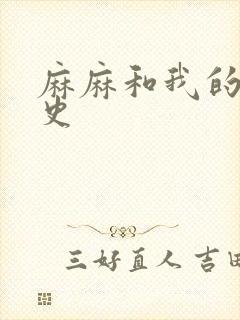 麻麻和我的
史
三好直人 吉田